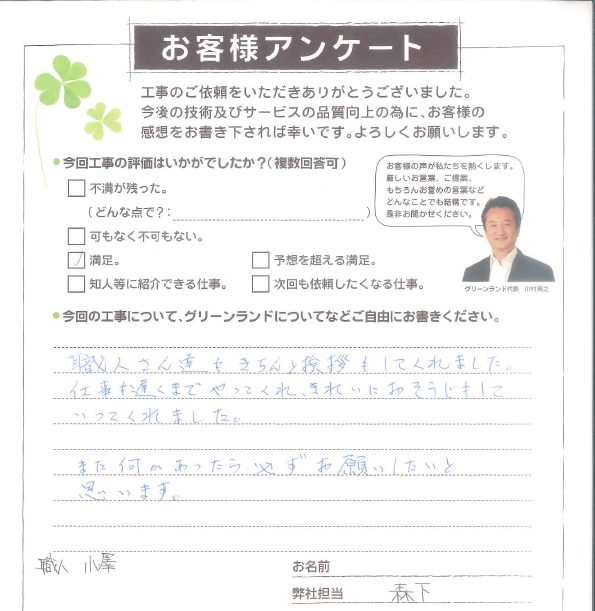 お客様アンケート
工事のご依頼をいただきありがとうございました。
今後の技術及びサービスの品質向上の為に、お客様の
感想をお書き下されば幸いです。よろしくお願いします。
●今回工事の評価はいかがでしたか?(複数回答可)
不満が残った。
(どんな点で?: )
可もなく不可もない。
満足。
予想を超える満足。
知人等に紹介できる仕事。
次回も依頼したくなる仕事。
お客様の声が私たちを熱くします。
厳しいお言葉、ご提案、
もちろんお誉めの言葉など
どんなことでも結構です。
是非お聞かせください。
グリーンランド代表 川村英之
●今回の工事について、グリーンランドについてなどご自由にお書きください。
職人さん達もきちんと挨拶もしてくれました。
仕事も遅くまでやってくれ、きれいにおそうじもして
いってくれました。
また何かあったら必ずお願いしたいと
思います。
職人 小澤
お名前
弊社担当 森下